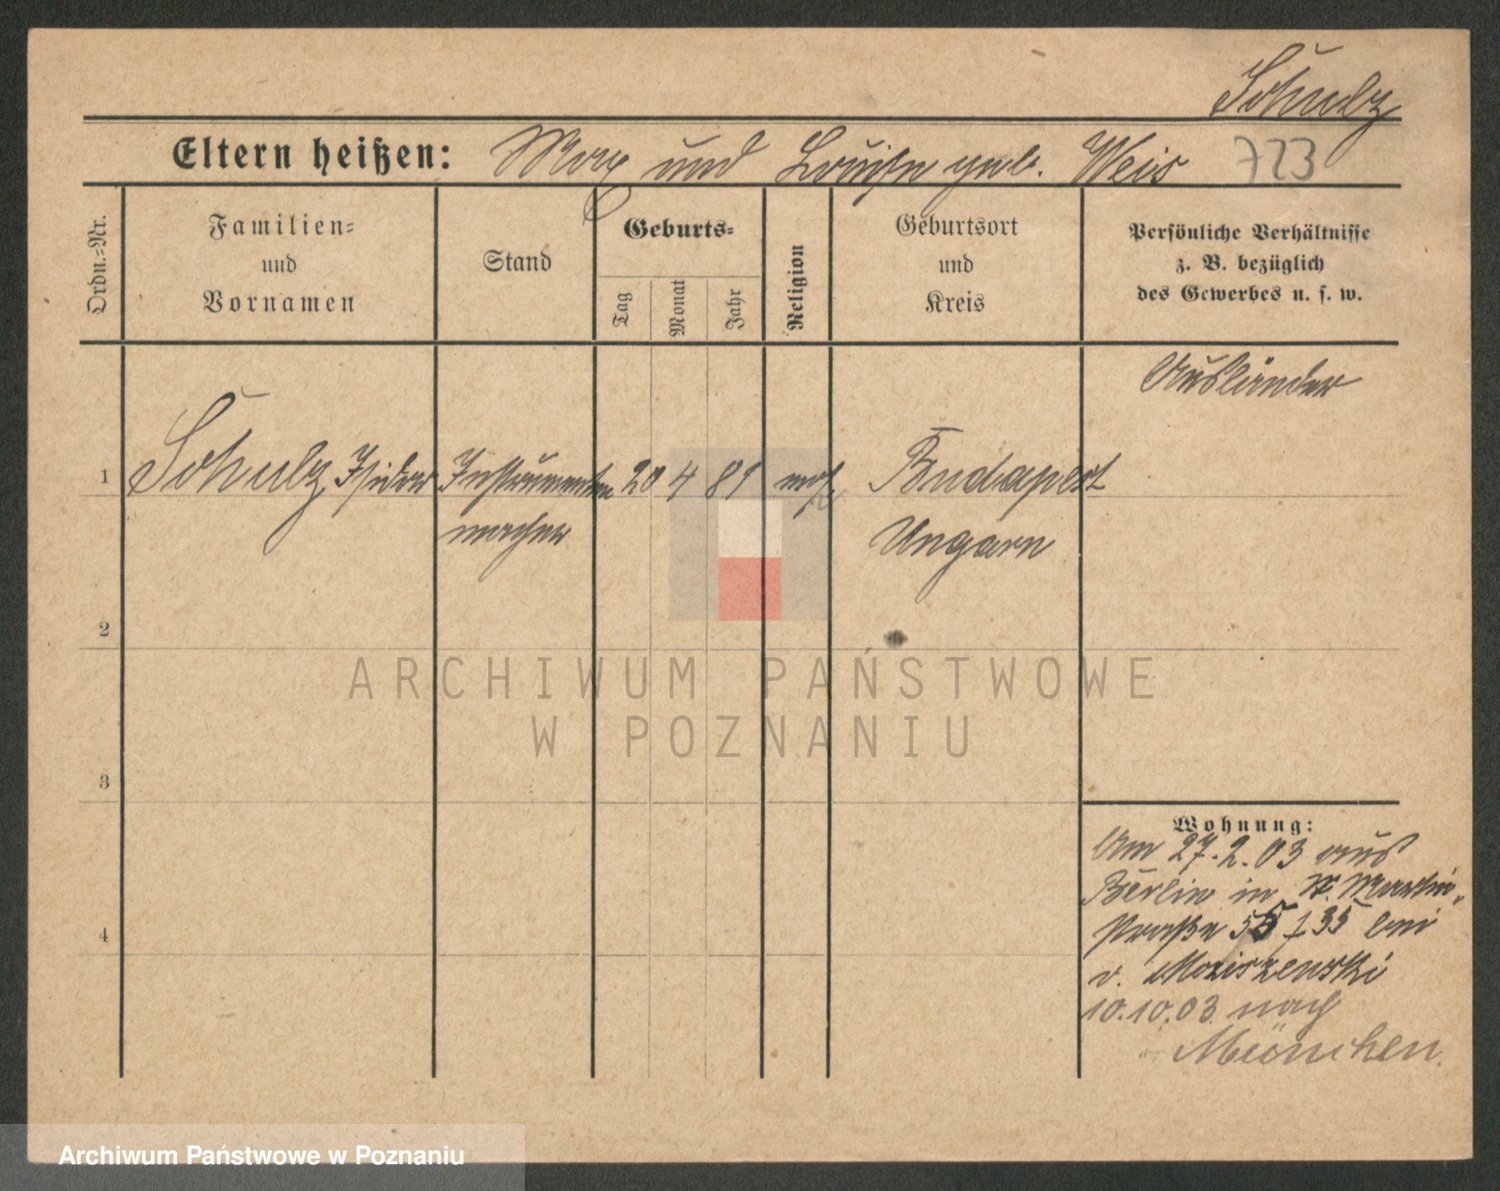 Schulz
Eltern heißen: Max und Louise geb. Weis 723
Ordn.=Nr.
Familien=
und
Vornamen
Stand
Geburts=
Tag
Monat
Jahr
Religion
Geburtsort
und
Kreis
Persönliche Verhältnisse
z. B. bezüglich
des Gewerbes u. s. w.
Ausländer
1 Schulz, Isidor Instrumenten 20 4 81 mos. Budapest
macher Ungarn
2
ARCHIWUM PAŃSTWOWE
W POZNANIU
3
Wohnung:
Am 27.2.03 aus
Berlin in St. Martin-
straße 55/35 bei
v.
4
10.10.03 nach
München.
Archiwum Państwowe w Poznaniu